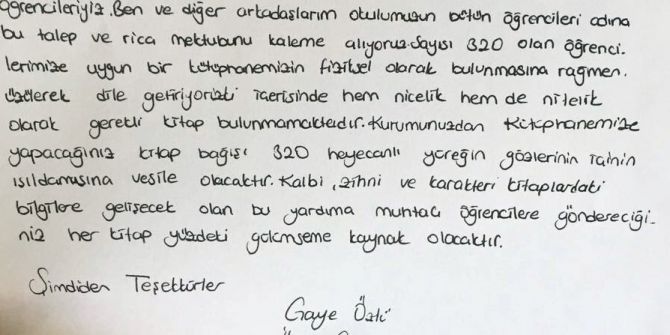 öğrencileriyiz. Ben ve diğer arkadaşlarım okulumuzun bütün öğrencileri adına
bu talep ve rica mektubunu kaleme alıyoruz. Sayısı 320 olan öğrenci-
lerimize uygun bir kütüphanemizin fiziksel olarak bulunmasına rağmen,
üzülerek dile getiriyoruz ki içerisinde hem nicelik hem de nitelik
olarak gerekli kitap bulunmamaktadır. Kurumunuzdan Kütüphanemize
yapacağınız kitap bağışı 320 heyecanlı yüreğin gözlerinin içinin
ışıldamasına vesile olacaktır. Kalbi, zihni ve karakteri kitaplardaki
bilgilere gelişecek olan bu yardıma muhtaç öğrencilere göndereceği-
niz her kitap yüzdeki gülümseme kaynak olacaktır.
Şimdiden Teşekkürler
Gaye